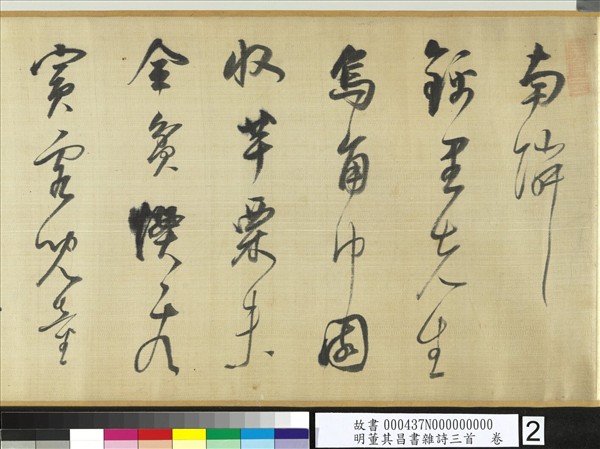 南隣
錦里先生
烏角巾園
收芋栗未
全貧慣看
賓客兒童
故書 000437N000000000
明董其昌書雜詩三首 卷
2